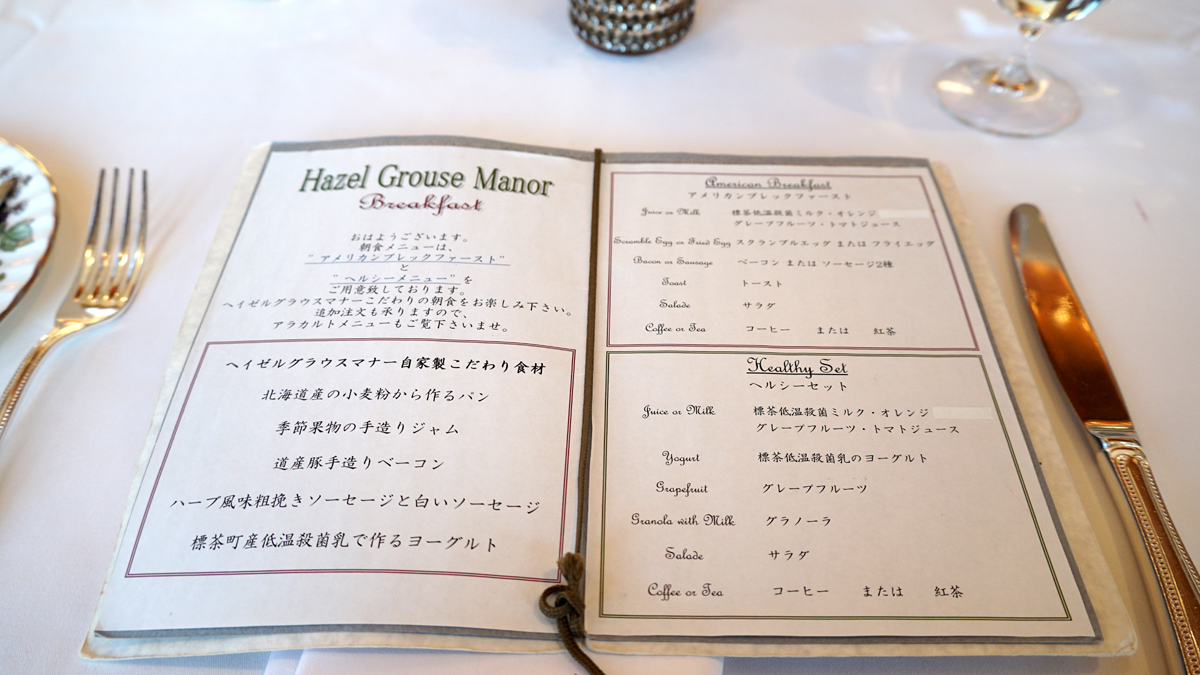 Hazel Grouse Manor
Breakfast
おはようございます。
朝食メニューは、
"アメリカンブレックファースト"
と
"ヘルシーメニュー"を
ご用意致しております。
ヘイゼルグラウスマナーこだわりの朝食をお楽しみ下さい。
追加注文も承りますので、
アラカルトメニューもご覧下さいませ。
ヘイゼルグラウスマナー自家製こだわり食材
北海道産の小麦粉から作るパン
季節果物の手造りジャム
道産豚手造りベーコン
ハーブ風味粗挽きソーセージと白いソーセージ
標茶町産低温殺菌乳で作るヨーグルト
American Breakfast
アメリカンブレックファースト
Juice or Milk 標茶低温殺菌ミルク・オレンジ
グレープフルーツ・トマトジュース
Scramble Egg or Fried Egg スクランブルエッグ または フライエッグ
Bacon or Sausage ベーコン または ソーセージ2種
Toast トースト
Salade サラダ
Coffee or Tea コーヒー または 紅茶
Healthy Set
ヘルシーセット
Juice or Milk 標茶低温殺菌ミルク・オレンジ
グレープフルーツ・トマトジュース
Yogurt 標茶低温殺菌乳のヨーグルト
Grapefruit グレープフルーツ
Granola with Milk グラノーラ
Salade サラダ
Coffee or Tea コーヒー または 紅茶